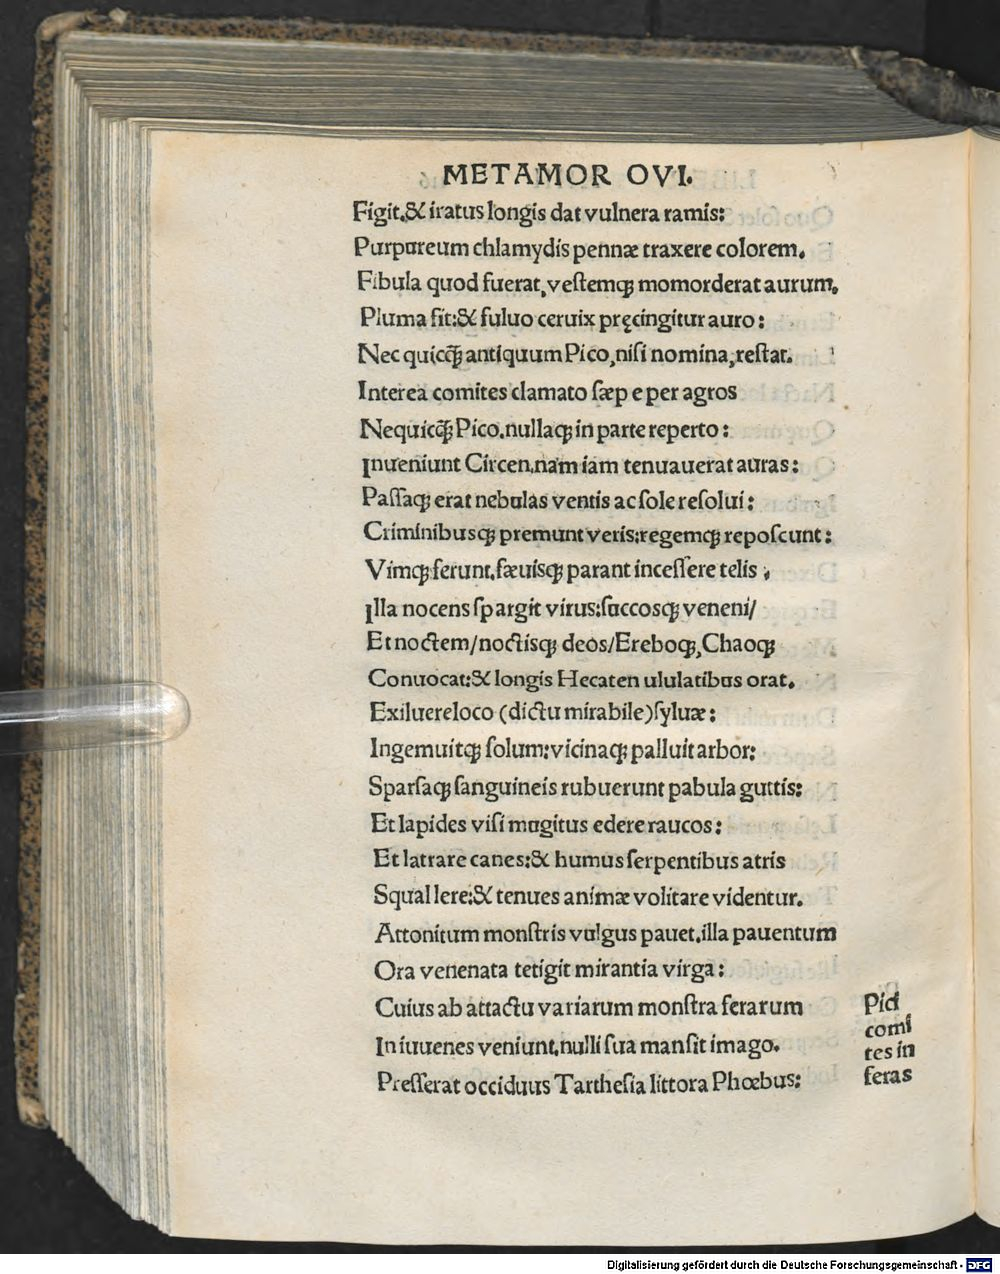 METAMOR OVI.
Figit.& iratus longis dat vulnera ramis:
Purpureum chlamydis pennæ traxere colorem.
Fibula quod fuerat,veſtemqꝫ momorderat aurum.
Pluma fit:& fuluo ceruix pręcingitur auro:
Nec quicq̃ꝫ antiquum Pico,niſi nomina,reſtat.
Interea comites clamato ſæp e per agros
Nequicq̃ꝫ Pico.nullaqꝫ in parte reperto:
Inueniunt Circen.nam iam tenuauerat auras:
Paſſaqꝫ erat nebulas ventis ac ſole reſolui:
Criminibusqꝫ premunt veris:regemqꝫ repoſcunt:
Vimqꝫ ferunt.ſæuisqꝫ parant inceſſere telis,
Illa nocens ſpargit virus:ſuccosqꝫ veneni/
Et noctem/noctisqꝫ deos/Ereboqꝫ,Chaoqꝫ
Conuocat:& longis Hecaten ululatibus orat.
Exiluereloco (dictu mirabile)ſyluæ:
Ingemuitqꝫ ſolum:vicinaqꝫ palluit arbor:
Sparſaqꝫ ſanguineis rubuerunt pabula guttis:
Et lapides viſi mugitus edere raucos:
Et latrare canes:& humus ſerpentibus atris
Squallere:& tenues animæ volitare videntur.
Attonitum monſtris vulgus pauet.illa pauentum
Ora venenata tetigit mirantia virga:
Cuius ab attactu variarum monſtra ferarum
In iuuenes veniunt.nulli ſua manſit imago.
Preſſerat occiduus Tartheſia littora Phœbus:
Pici
comi
tes in
feras
Digitalisierung gefördert durch die Deutsche Forschungsgemeinschaft - DFG